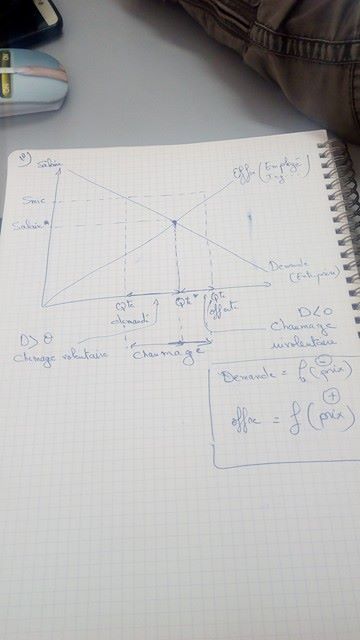 Salaire
Offre (Employé
Smic
Salaire*
Demande
(Entreprise)
Qte
demandé
Qte*
Qte
offerte
D > O
Chômage volontaire
Chaumage
D < O
Chaumage
involontaire
Demande = f (prix)
-
offre = f (prix)
+